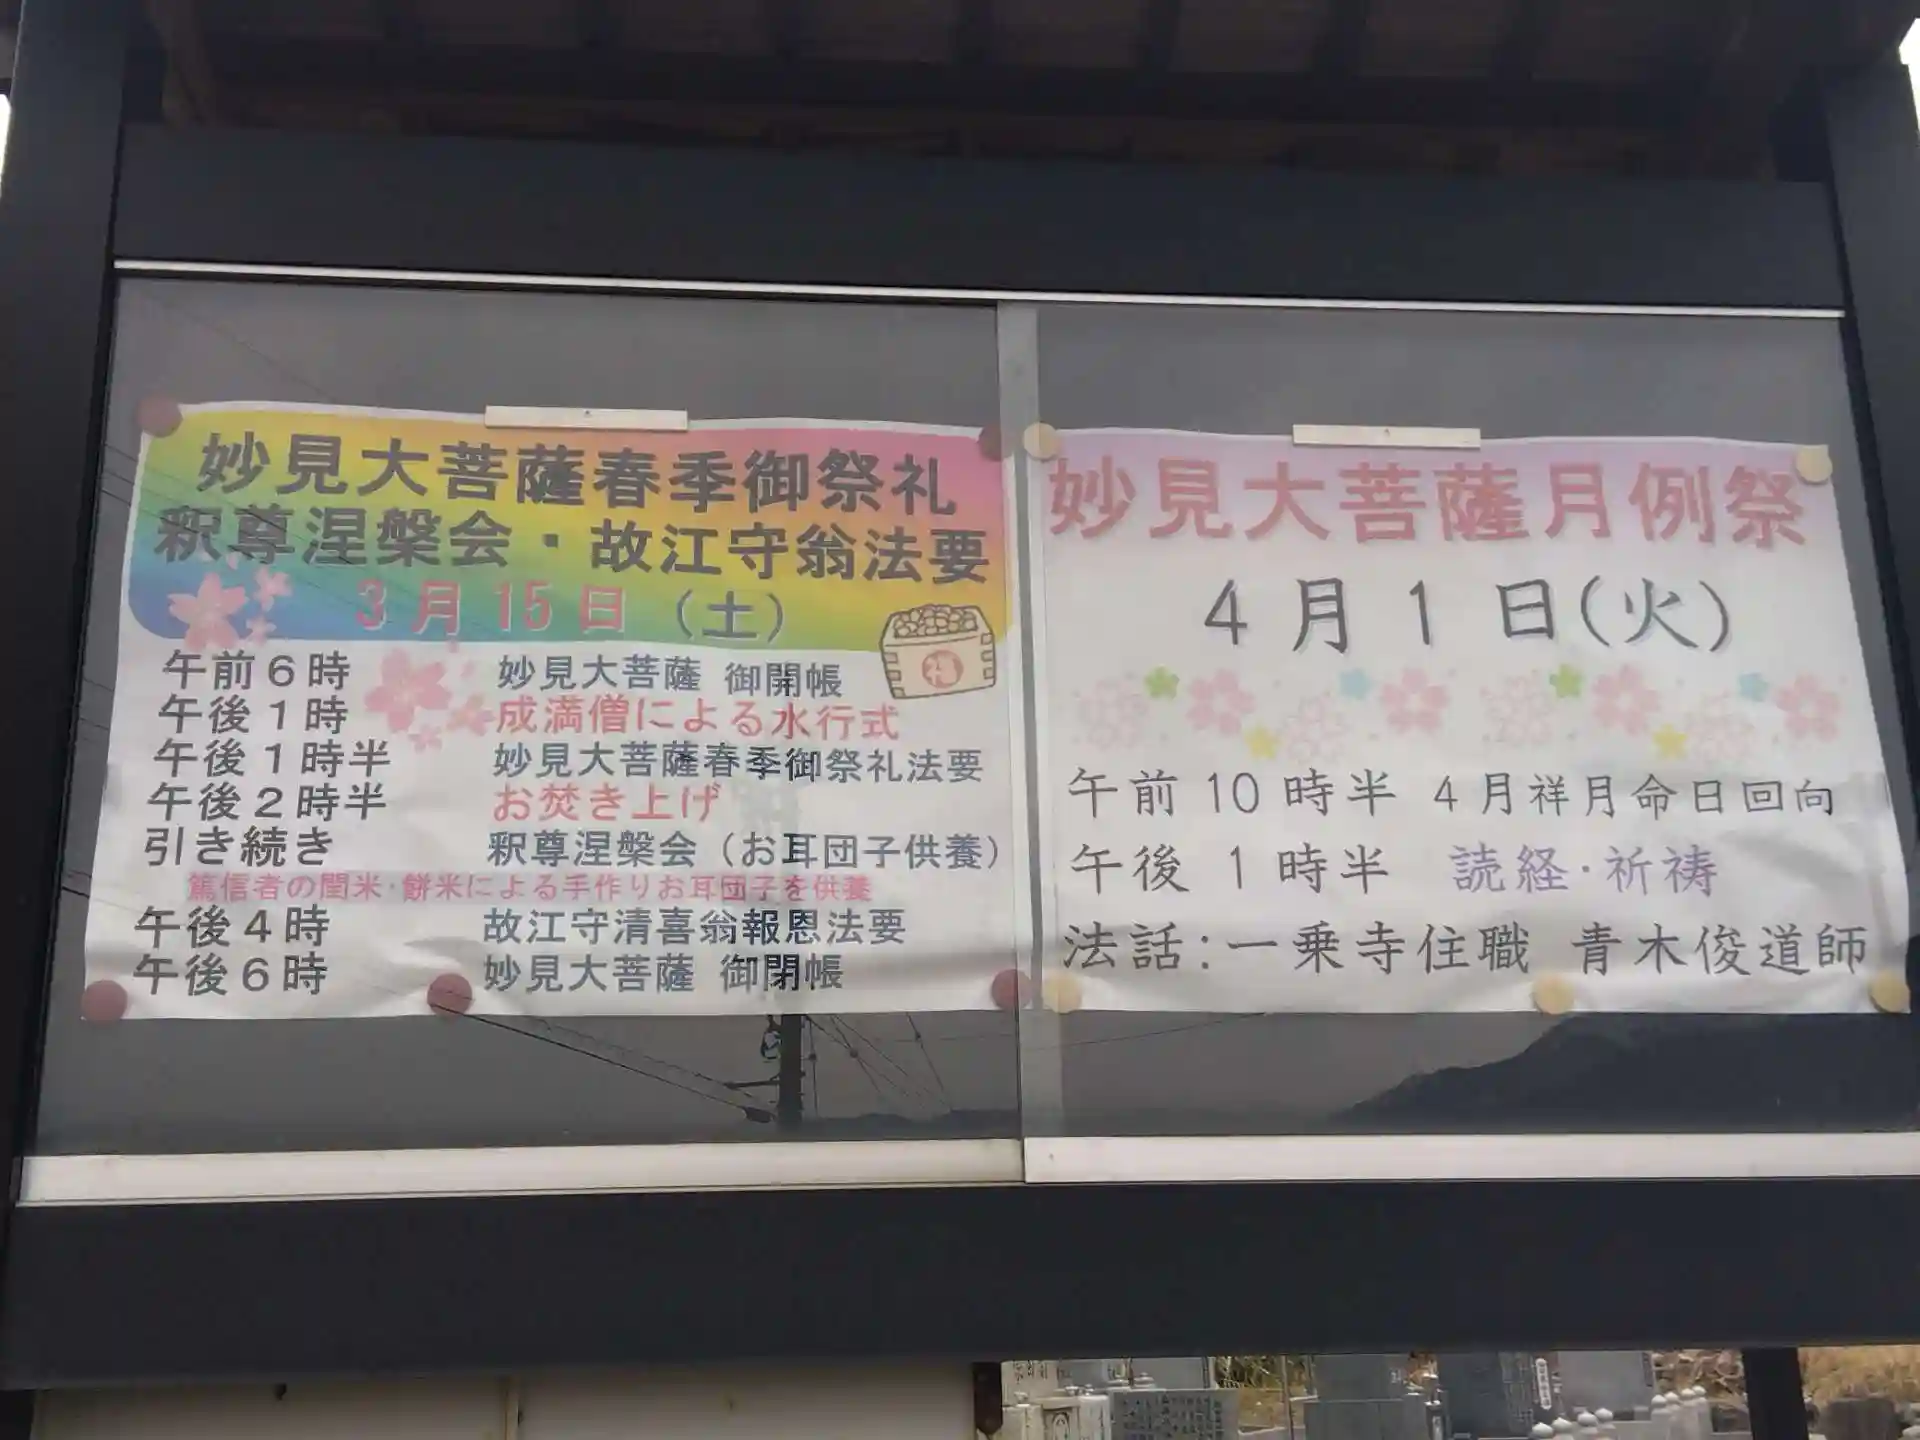 妙見大菩薩春季御祭礼
釈尊涅槃会・故江守翁法要
3月15日（土）
午前6時 妙見大菩薩 御開帳
午後1時 成満僧による水行式
午後1時半 妙見大菩薩春季御祭礼法要
午後2時半 お焚き上げ
引き続き 釈尊涅槃会（お耳団子供養）
篤信者の閏米・餅米による手作りお耳団子を供養
午後4時 故江守清喜翁報恩法要
午後6時 妙見大菩薩 御閉帳
妙見大菩薩月例祭
4月1日(火)
午前10時半 4月祥月命日回向
午後1時半 読経・祈祷
法話：一乗寺住職 青木俊道師